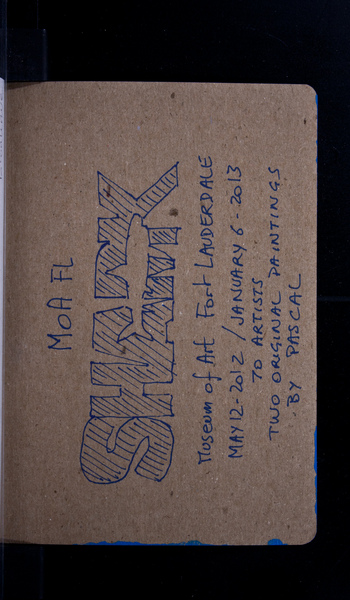 MOA FL
SHARK
Museum of Art Fort LAUDERDALE
MAY 12-2012 / JANUARY 6-2013
70 ARTISTS
TWO ORIGINAL PAINTINGS
BY PASCAL